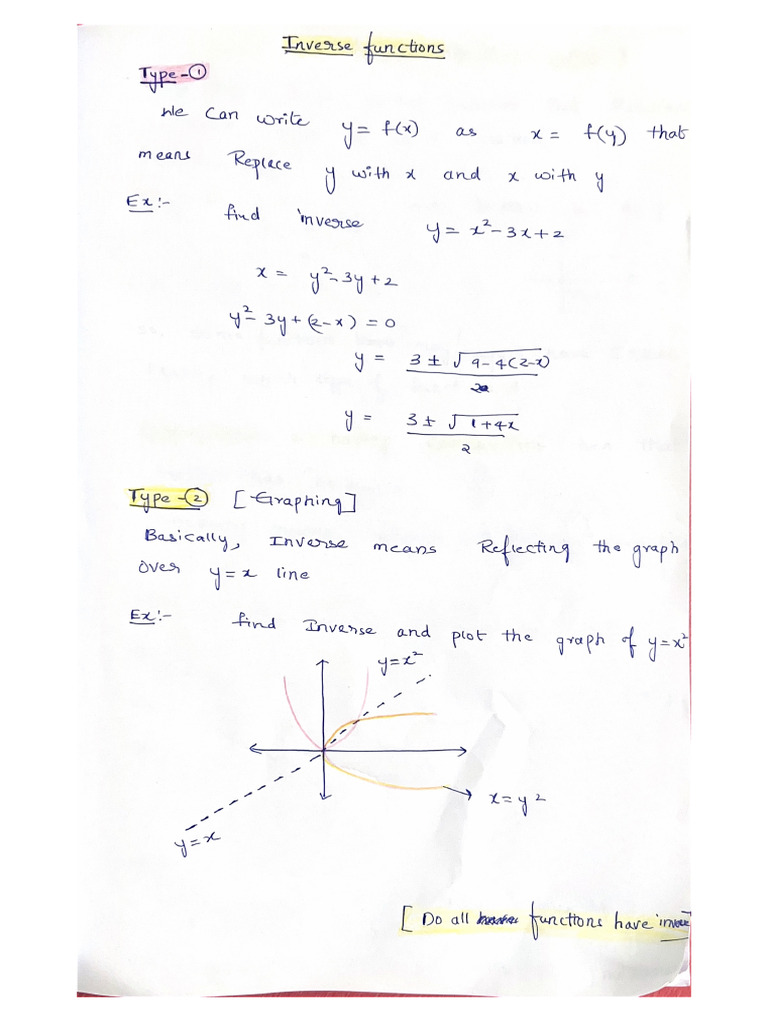 Inverse functions
Type-①
We Can write y = f(x) as x = f(y) that
means Replace y with x and x with y
Ex:- find inverse y = x²-3x+2
x = y²-3y+2
y²-3y+(2-x) = 0
y = 3 ± √9-4(2-x) / 2
y = 3 ± √1+4x / 2
Type-② [Graphing]
Basically, Inverse means Reflecting the graph
over y=x line
Ex:- find Inverse and plot the graph of y=x²
y=x²
x=y²
y=x
[Do all functions have